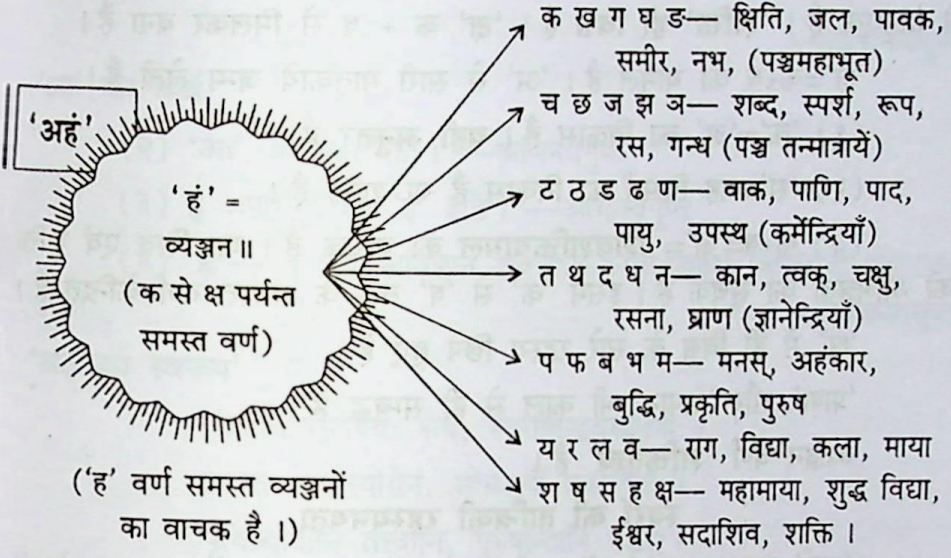 'अहं'
'हं' =
व्यञ्जन॥
(क से क्ष पर्यन्त
समस्त वर्ण)
('ह' वर्ण समस्त व्यञ्जनों
का वाचक है।)
क ख ग घ ङ— क्षिति, जल, पावक,
समीर, नभ, (पञ्चमहाभूत)
च छ ज झ ञ— शब्द, स्पर्श, रूप,
रस, गन्ध (पञ्च तन्मात्रायें)
ट ठ ड ढ ण— वाक्, पाणि, पाद,
पायु, उपस्थ (कर्मेन्द्रियाँ)
त थ द ध न— कान, त्वक्, चक्षु,
रसना, घ्राण (ज्ञानेन्द्रियाँ)
प फ ब भ म— मनस्, अहंकार,
बुद्धि, प्रकृति, पुरुष
य र ल व— राग, विद्या, कला, माया
श ष स ह क्ष— महामाया, शुद्ध विद्या,
ईश्वर, सदाशिव, शक्ति ।